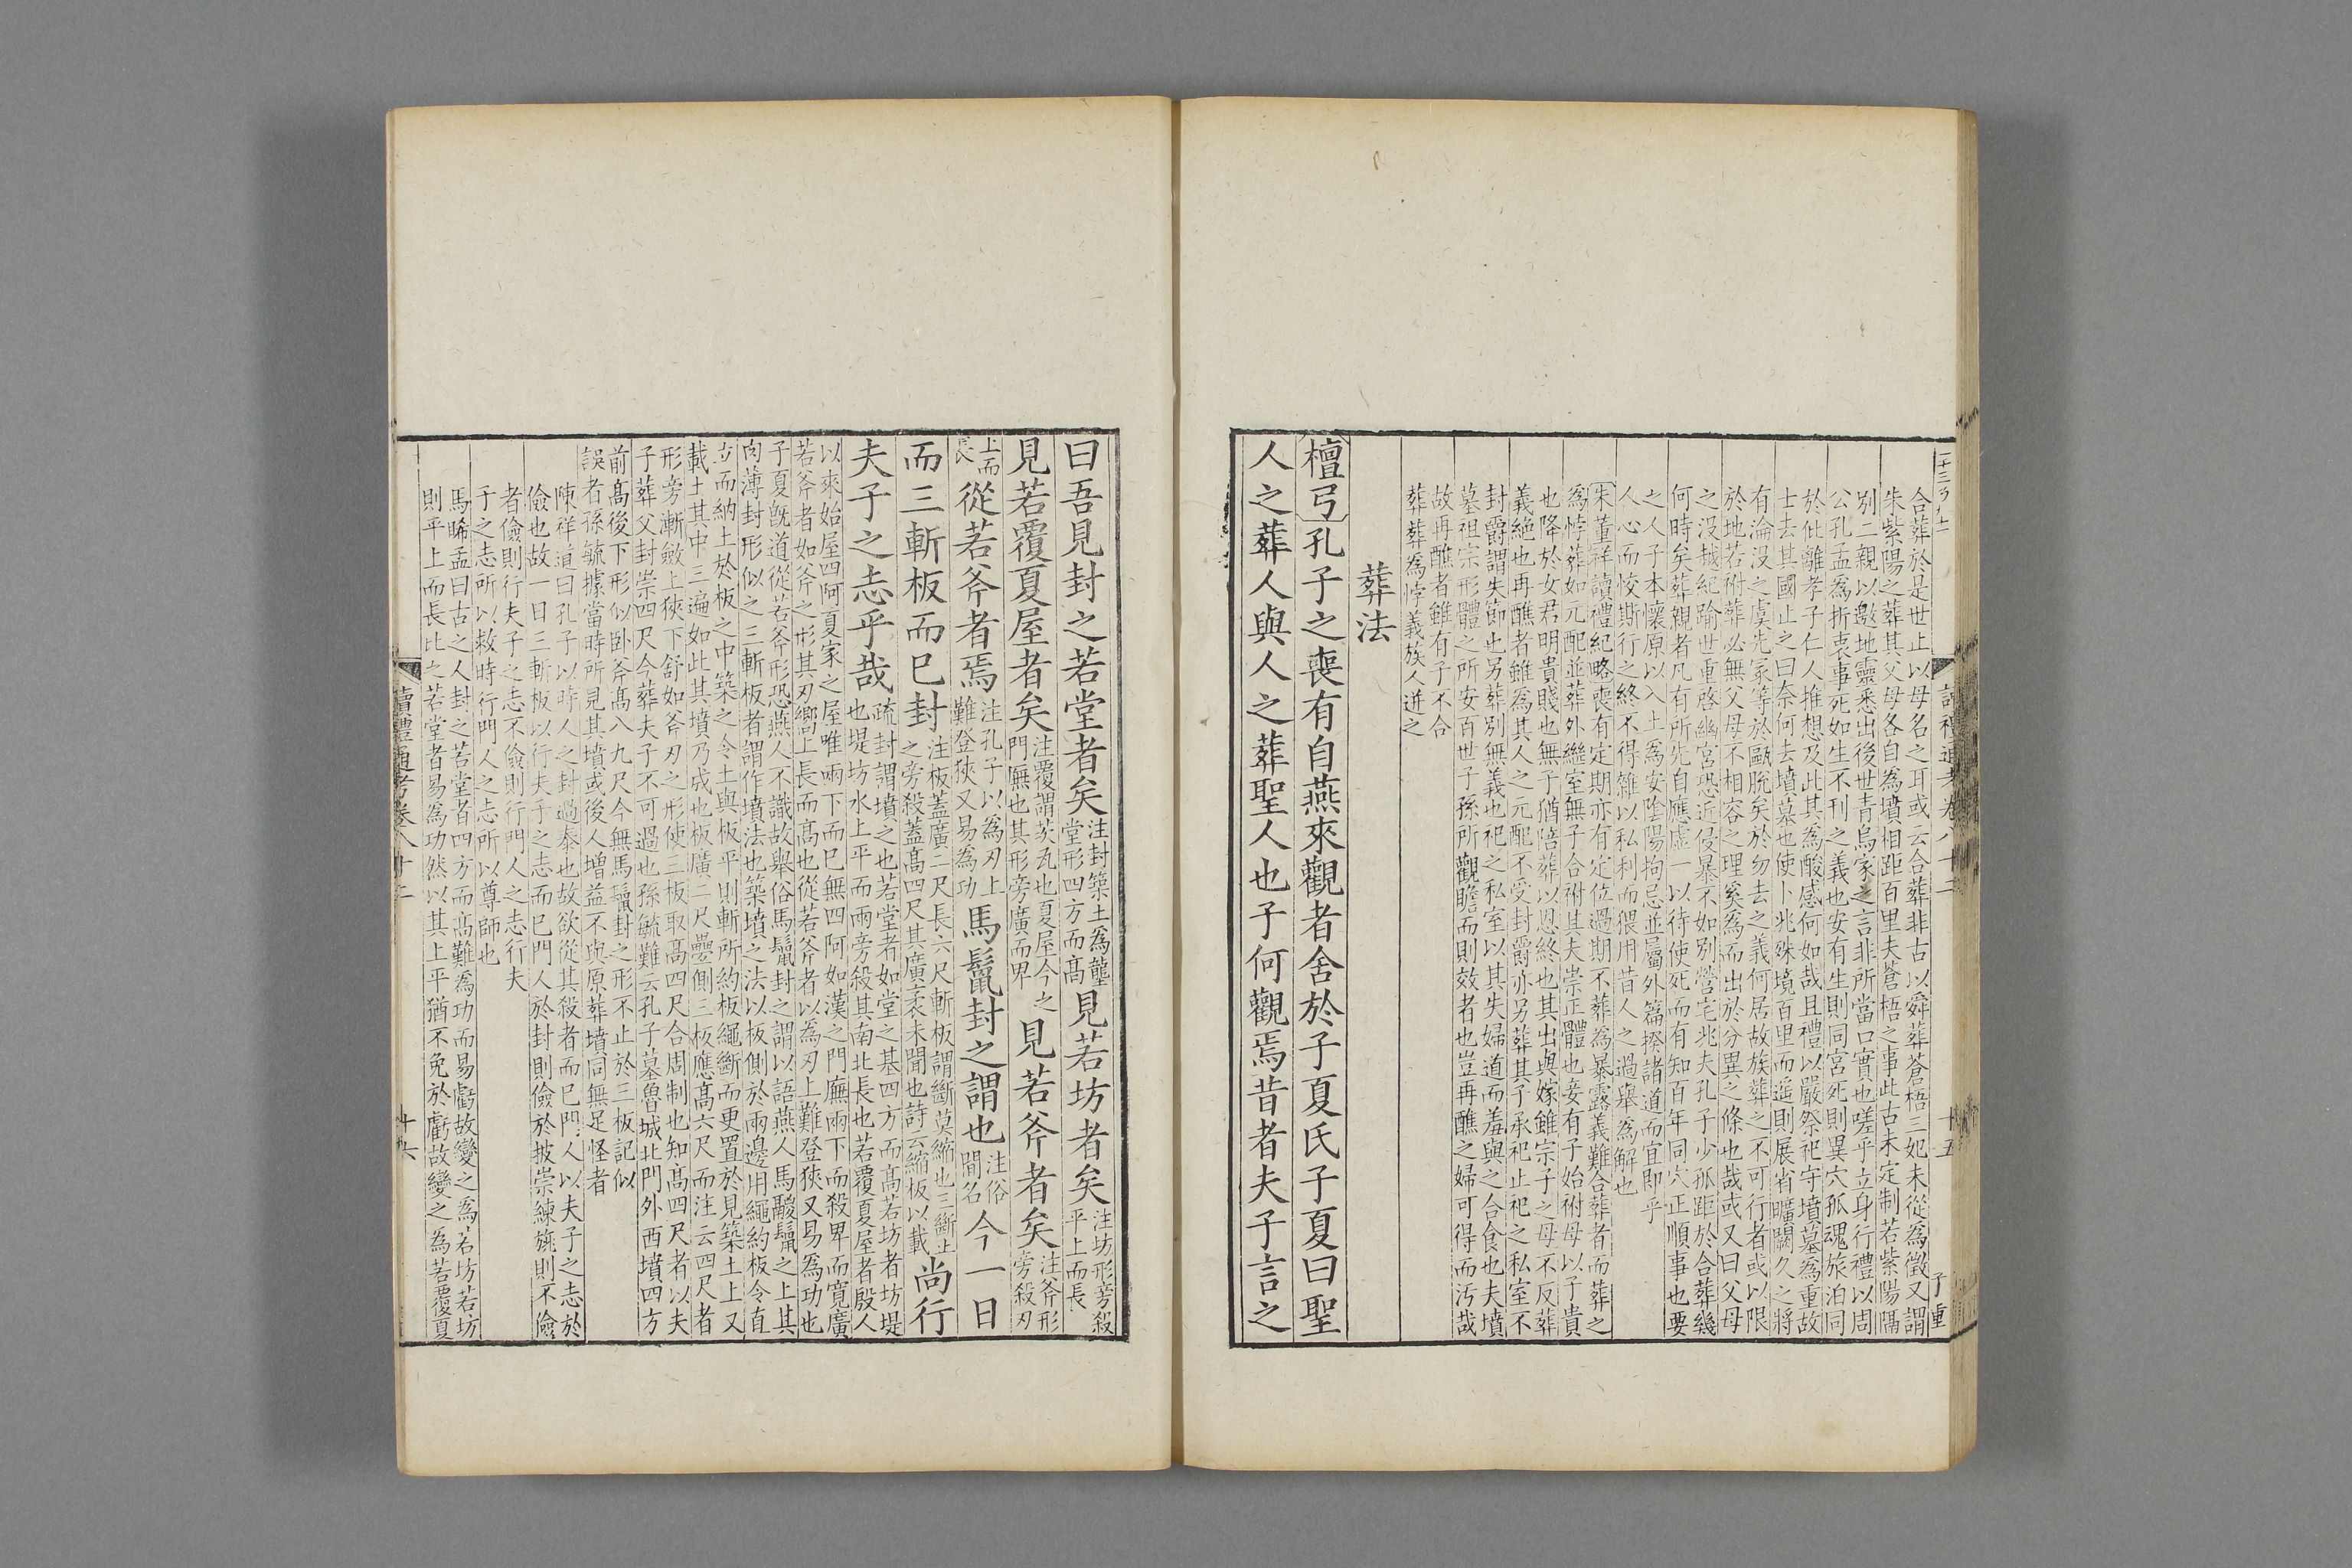 讀禮通考卷八十二
十五
子重
合葬於是世止以母名之耳或云合葬非古以舜葬蒼梧三妃未從為徵又謂
朱紫陽之葬其父母各自為墳相距百里夫蒼梧之事此古未定制若紫陽隔
別二親以邀地靈悉出後世青烏家之言非所當口實也嗟乎立身行禮以周
公孔孟為折衷事死如生不刊之義也安有生則同宮死則異穴孤魂旅泊同
於仳離孝子仁人推想及此其為酸感何如哉且禮以嚴祭祀守墳墓為重故
士去其國止之曰奈何去墳墓也使卜兆殊境百里而遥則展省曠闕久之將
有淪没之虞先冢等於甌脫矣於勿去之義何居故族葬之不可行者或以限
於地若祔葬必無父母不相容之理奚為而出於分異之條也哉或又曰父母
之没越紀踰世重啓幽宮恐近侵暴不如別營宅兆夫孔子少孤距於合葬幾
何時矣葬親者凡有所先自應虛一以待使死而有知百年同穴正順事也要
之人子本懷原以入土為安陰陽拘忌並屬外篇揆諸道而宜即乎
人心而恔斯行之終不得雜以私利而猥用昔人之過舉為解也
朱董祥讀禮紀略喪有定期亦有定位過期不葬為暴露義難合葬者而葬之
為悖葬如元配並葬外繼室無子合祔其夫崇正體也妾有子始祔母以子貴
也降於女君明貴賤也無子猶陪葬以恩終也其出與嫁雖宗子之母不反葬
義絶也再醮者雖為其人之元配不受封爵亦另葬其子承祀止祀之私室不
封爵謂失節也另葬別無義也祀之私室以其失婦道而羞與之合食也夫墳
墓祖宗形體之所安百世子孫所觀瞻而則效者也豈再醮之婦可得而汚哉
故再醮者雖有子不合
葬葬為悖義族人迸之
葬法
檀弓孔子之喪有自燕來觀者舍於子夏氏子夏曰聖
人之葬人與人之葬聖人也子何觀焉昔者夫子言之
曰吾見封之若堂者矣注封築土為壟堂形四方而高見若坊者矣注坊形旁殺平上而長
見若覆夏屋者矣注覆謂茨瓦也夏屋今之門廡也其形旁廣而卑見若斧者矣注斧形旁殺刃
上而長從若斧者焉注孔子以為刃上難登狹又易為功馬鬣封之謂也注俗間名今一日
而三斬板而已封注板蓋廣二尺長六尺斬板謂斷莫縮也三斷止之旁殺蓋高四尺其廣袤未聞也詩云縮板以載尚行
夫子之志乎哉疏封謂墳之也若堂者如堂之基四方而高若坊者坊堤也堤坊水上平而兩旁殺其南北長也若覆夏屋者殷人
以來始屋四阿夏家之屋唯兩下而已無四阿如漢之門廡兩下而殺卑而寬廣
若斧者如斧之形其刃嚮上長而高也從若斧者以為刃上難登狹又易為功也
子夏旣道從若斧形恐燕人不識故舉俗馬鬣封之謂以語燕人馬騣鬣之上其
肉薄封形似之三斬板者謂作墳法也築墳之法以板側於兩邊用繩約板令直
立而納土於板之中築之令土與板平則斬所約板繩斷而更置於見築土上又
載土其中三遍如此其墳乃成也板廣二尺疊側三板應高六尺而注云四尺者
形旁漸斂上狹下舒如斧刃之形使三板取高四尺合周制也知高四尺者以夫
子葬父封崇四尺今葬夫子不可過也孫毓難云孔子墓魯城北門外西墳四方
前高後下形似卧斧高八九尺今無馬鬣封之形不止於三板記似
誤者孫毓據當時所見其墳或後人增益不與原葬墳同無足怪者
陳祥道曰孔子以時人之封過泰也故欲從其殺者而已門人以夫子之志於
儉也故一日三斬板以行夫子之志而已門人於封則儉於披崇練旐則不儉
者儉則行夫子之志不儉則行門人之志行夫
子之志所以救時行門人之志所以尊師也
馬睎孟曰古之人封之若堂者四方而高難為功而易虧故變之為若坊若坊
則平上而長比之若堂者易為功然以其上平猶不免於虧故變之為若覆夏
讀禮通考卷八十二
十六